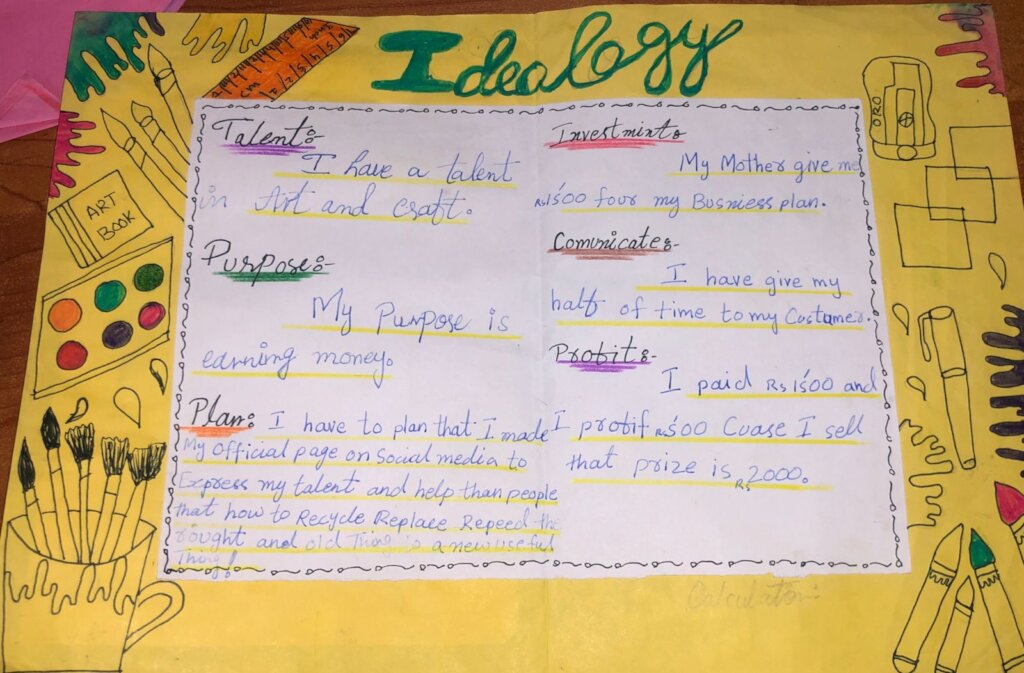 Idealogy
Talent:-
I have a talent
in Art and craft.
Purpose:-
My Purpose is
earning money.
Plan: I have to plan that I made
My official page on Social media to
Express my talent and help than people
that how to Recycle Replace Repeed the
rought and old Thing to a new useful
Thing!
Investmint:-
My Mother give me
Rs1500 four my Busniess plan.
Comunicate:-
I have give my
half of time to my Custamer.
Profit:-
I paid Rs1500 and
I profit Rs500 Cuase I sell
that prize is Rs2000.
Calculation:-
ART
BOOK
ORO
cm